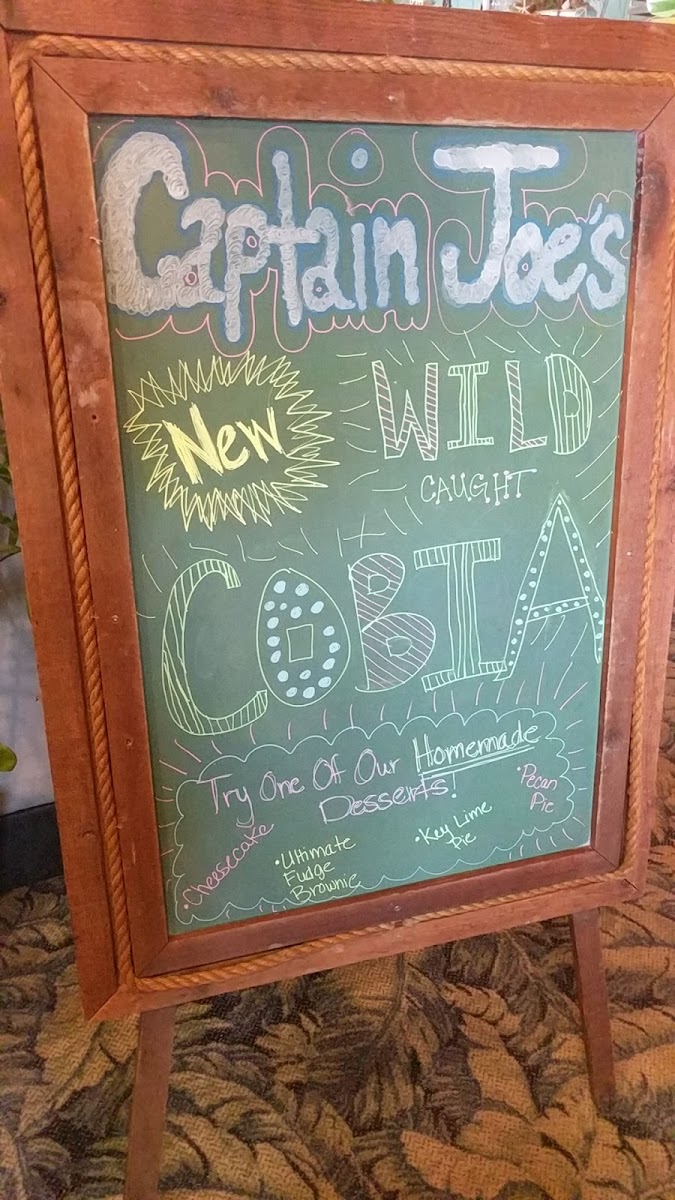 Captain Joe's
New
WILD
CAUGHT
COBIA
Try One Of Our Homemade
Desserts!
• Cheesecake
• Ultimate
Fudge
Brownie
• Key Lime
Pie
• Pecan
Pie